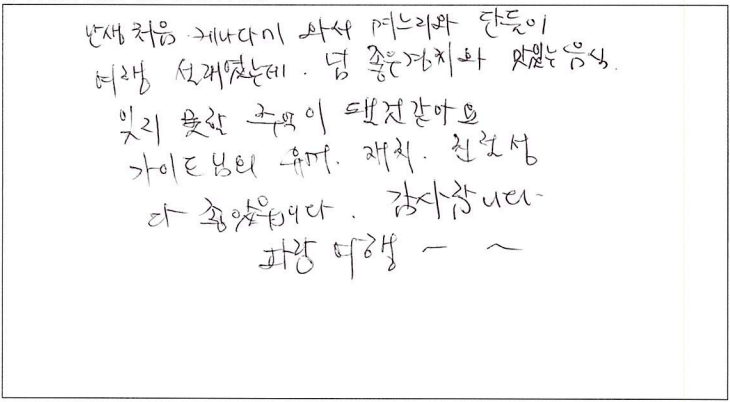 난생처음 캐나다에 와서 며느리와 단둘이
여행 설래였는데. 넘 좋은경치와 맛있는음식.
잊지 못할 추억이 됀것같아요
가이드님의 유머. 재치. 친절성
다 좋았습니다. 감사합니다-
파랑 여행 ~ ~